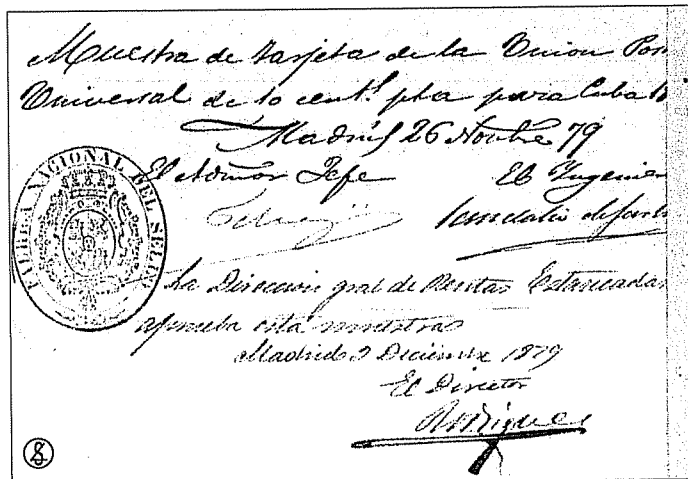 Muestra de tarjeta de la Union Pos
Universal de 10 cent.s pta para Cuba
Madrid 26 Novbre 79
El Admor Jefe El Ingenie
FABRICA NACIONAL DEL SELLO
La Direccion gral de Rentas Estancadas
aprueba esta muestra
Madrid 9 Diciembre 1879
El Director
Rodriguez